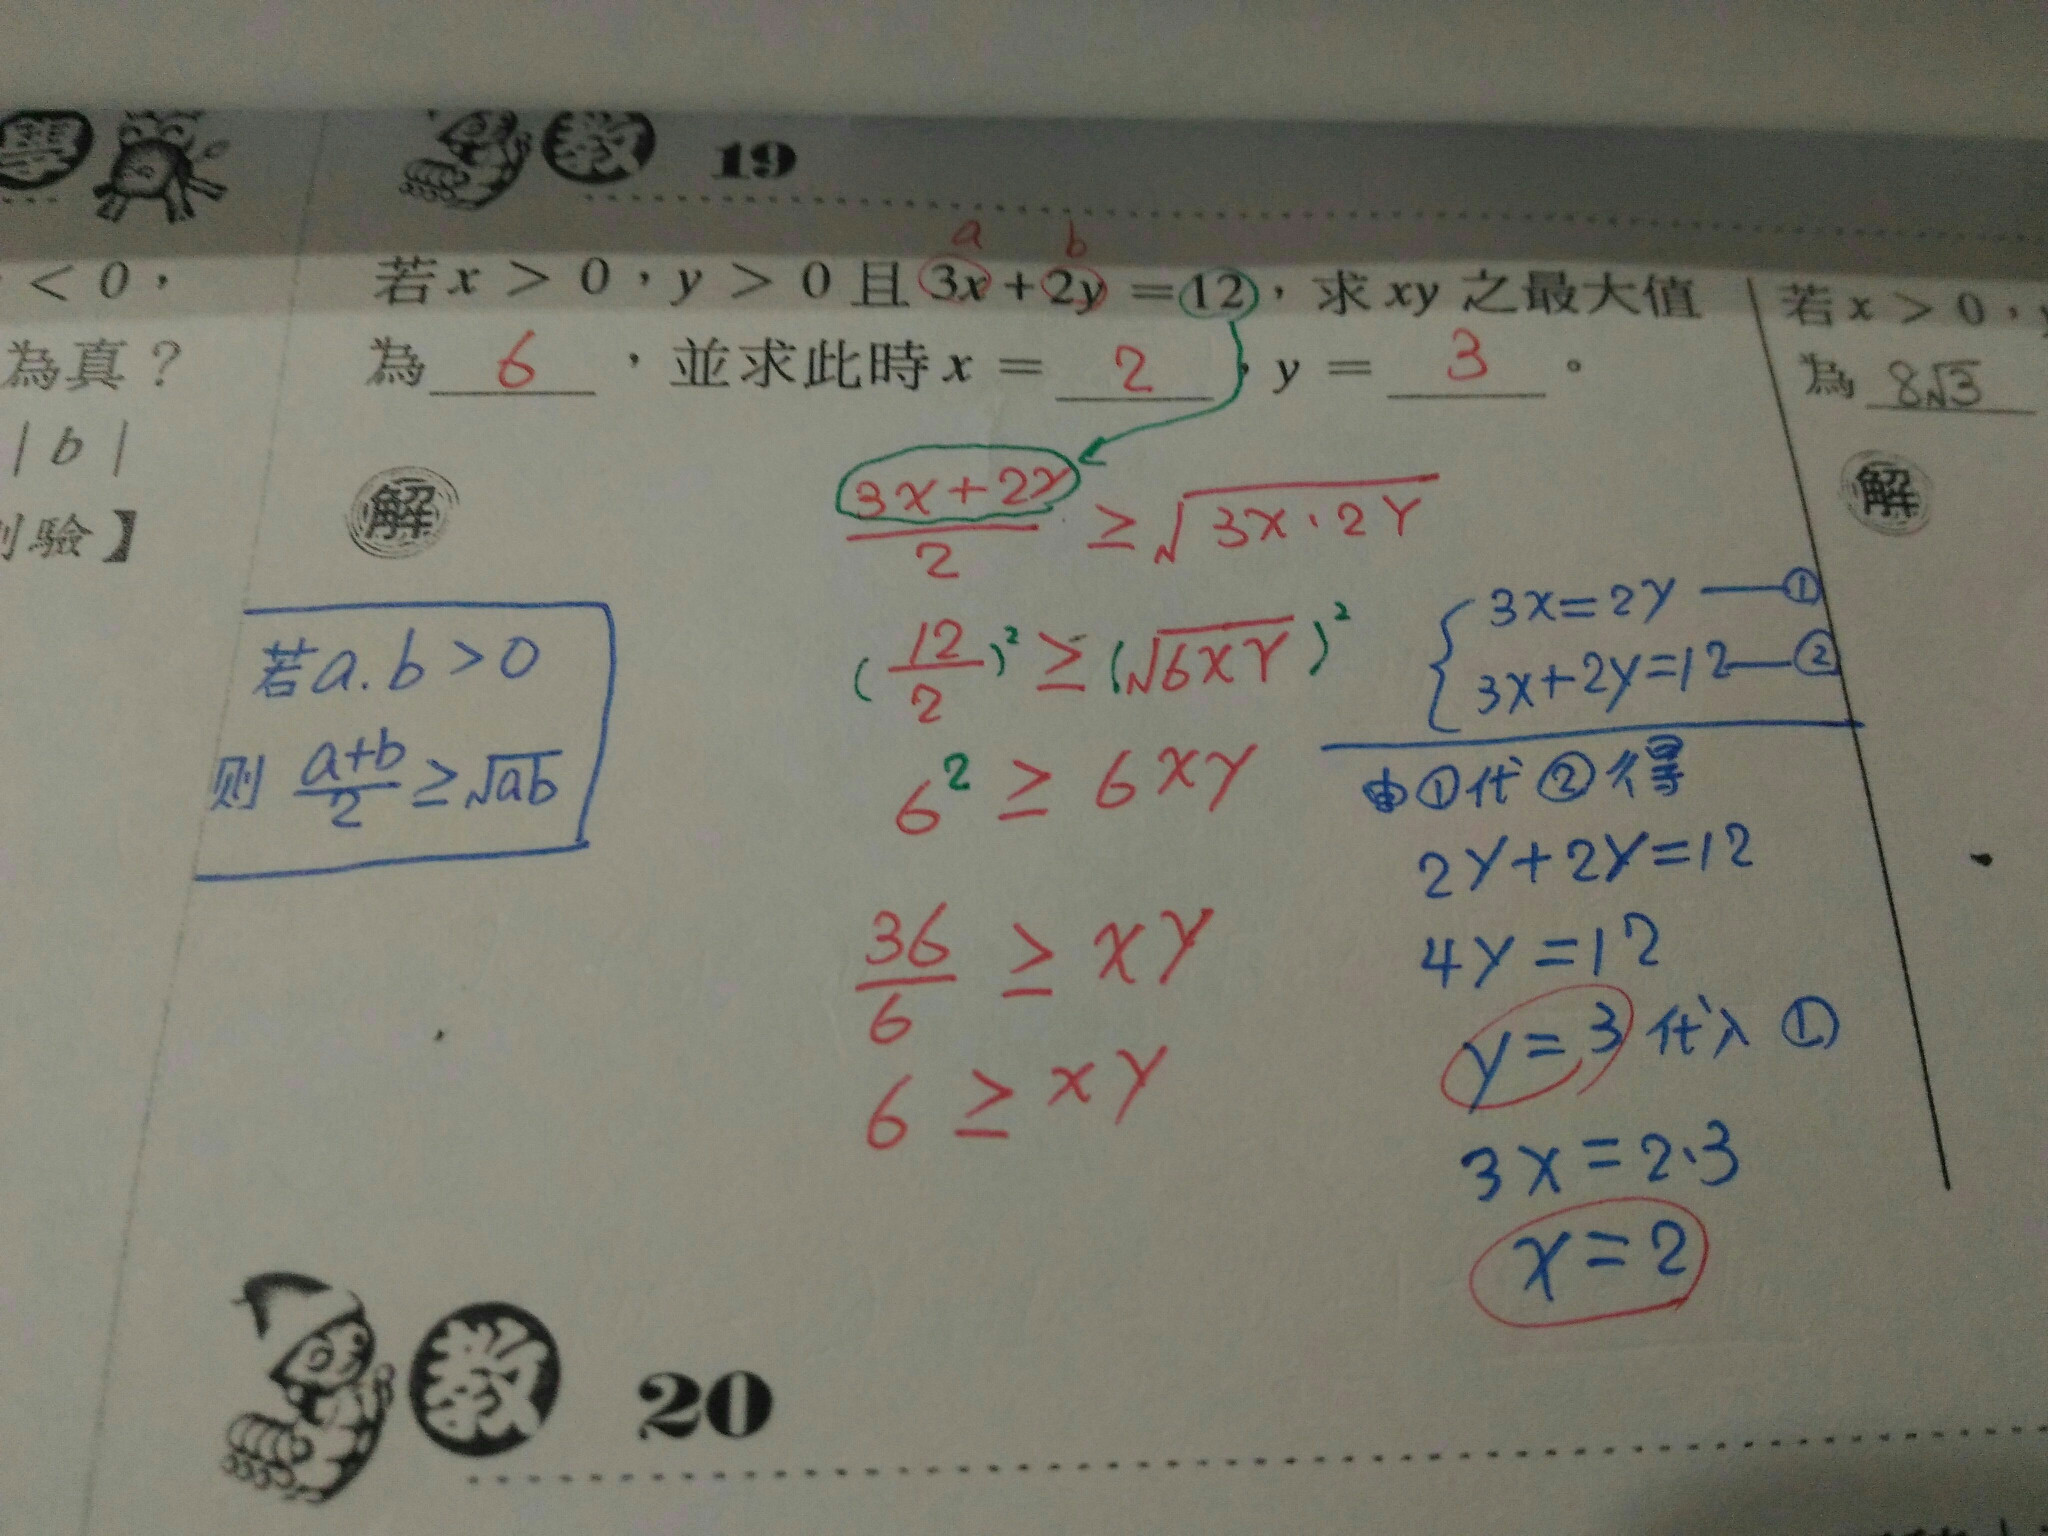 數 19
< 0，
為真？
| b |
驗】
若 x > 0，y > 0 且 3x + 2y = 12，求 xy 之最大值
a b
為 6 ，並求此時 x = 2 ，y = 3 。
解
若 a.b > 0
则 \frac{a+b}{2} ≥ √ab
\frac{3x+2y}{2} ≥ √3x·2y
(\frac{12}{2})² ≥ (√6xy)²
6² ≥ 6xy
\frac{36}{6} ≥ xy
6 ≥ xy
{ 3x=2y —①
3x+2y=12—②
由①代②得
2y+2y=12
4y=12
y=3 代入①
3x=2·3
x=2
若 x > 0，
為 8√3
解
數 20